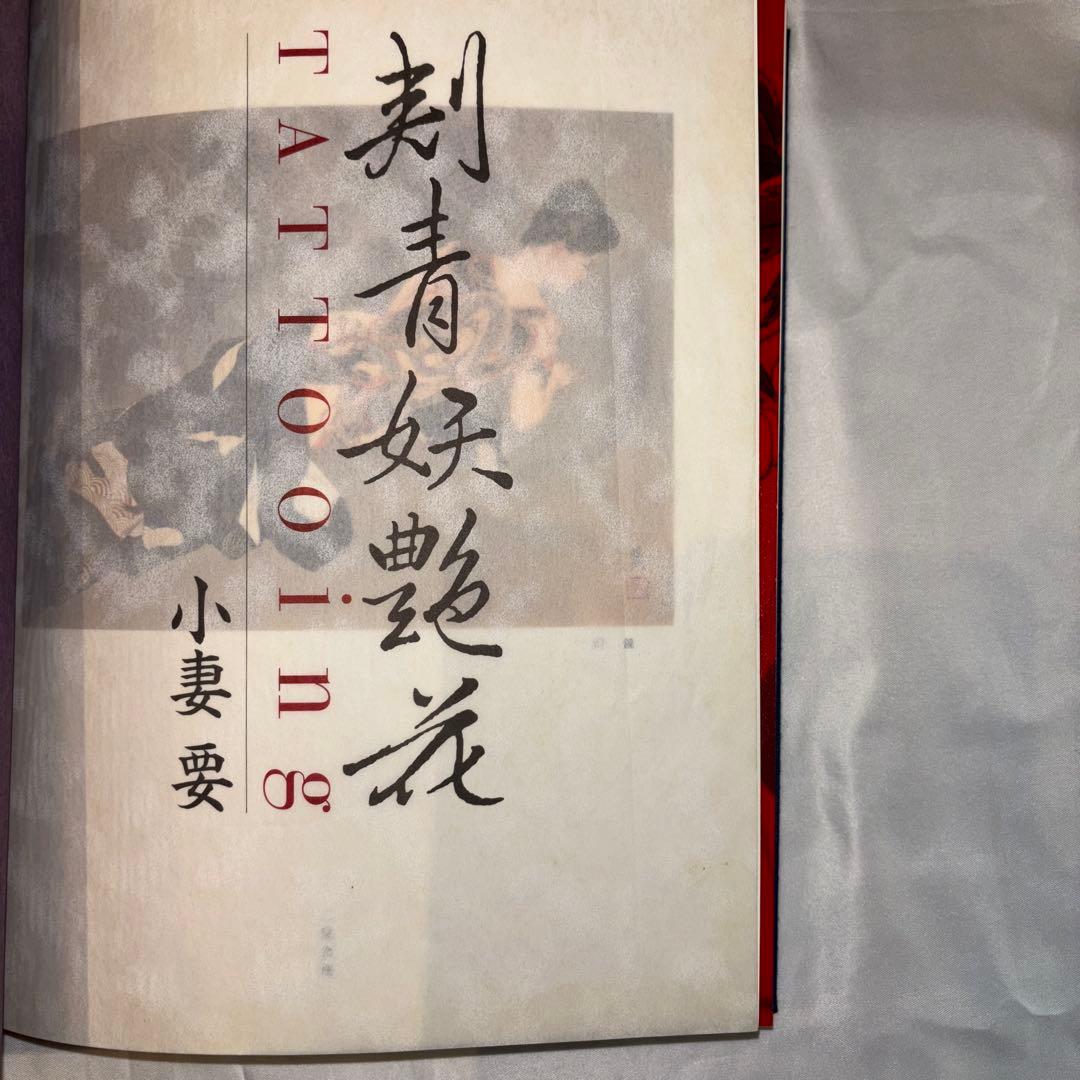 刺青妖艶花
TATTOOing
小妻要